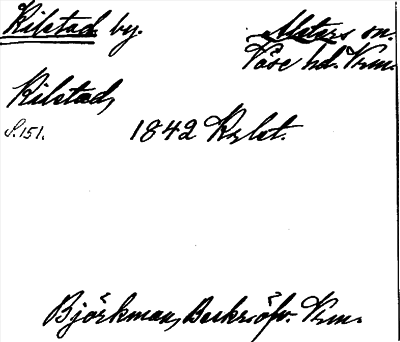 Kilstad by. Alsters sn.
Väse hd. Vrm.
Kilstad,
S. 151. 1842
Björkman, Beskr. öfv. Vrm.